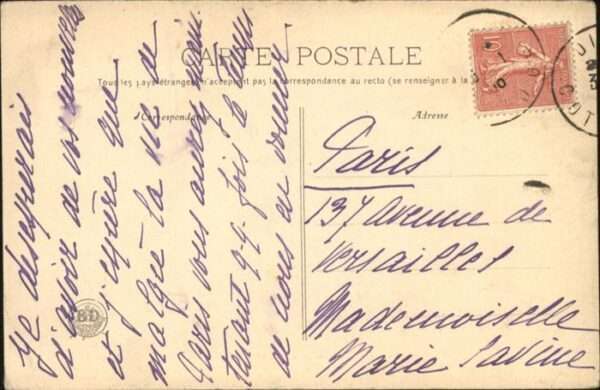 CARTE POSTALE
Tous les pays étrangers n'acceptent pas la correspondance au recto (se renseigner à la
Correspondance
Adresse
Je desesperais
d'avoir de vos nouvelles
et j'espère que
malgré la vie de
Paris vous aurez
tenant qq. fois le
de nous en donner
Paris
137 Avenue de
Versailles
Mademoiselle
Marie Lavine
BD
10
COT